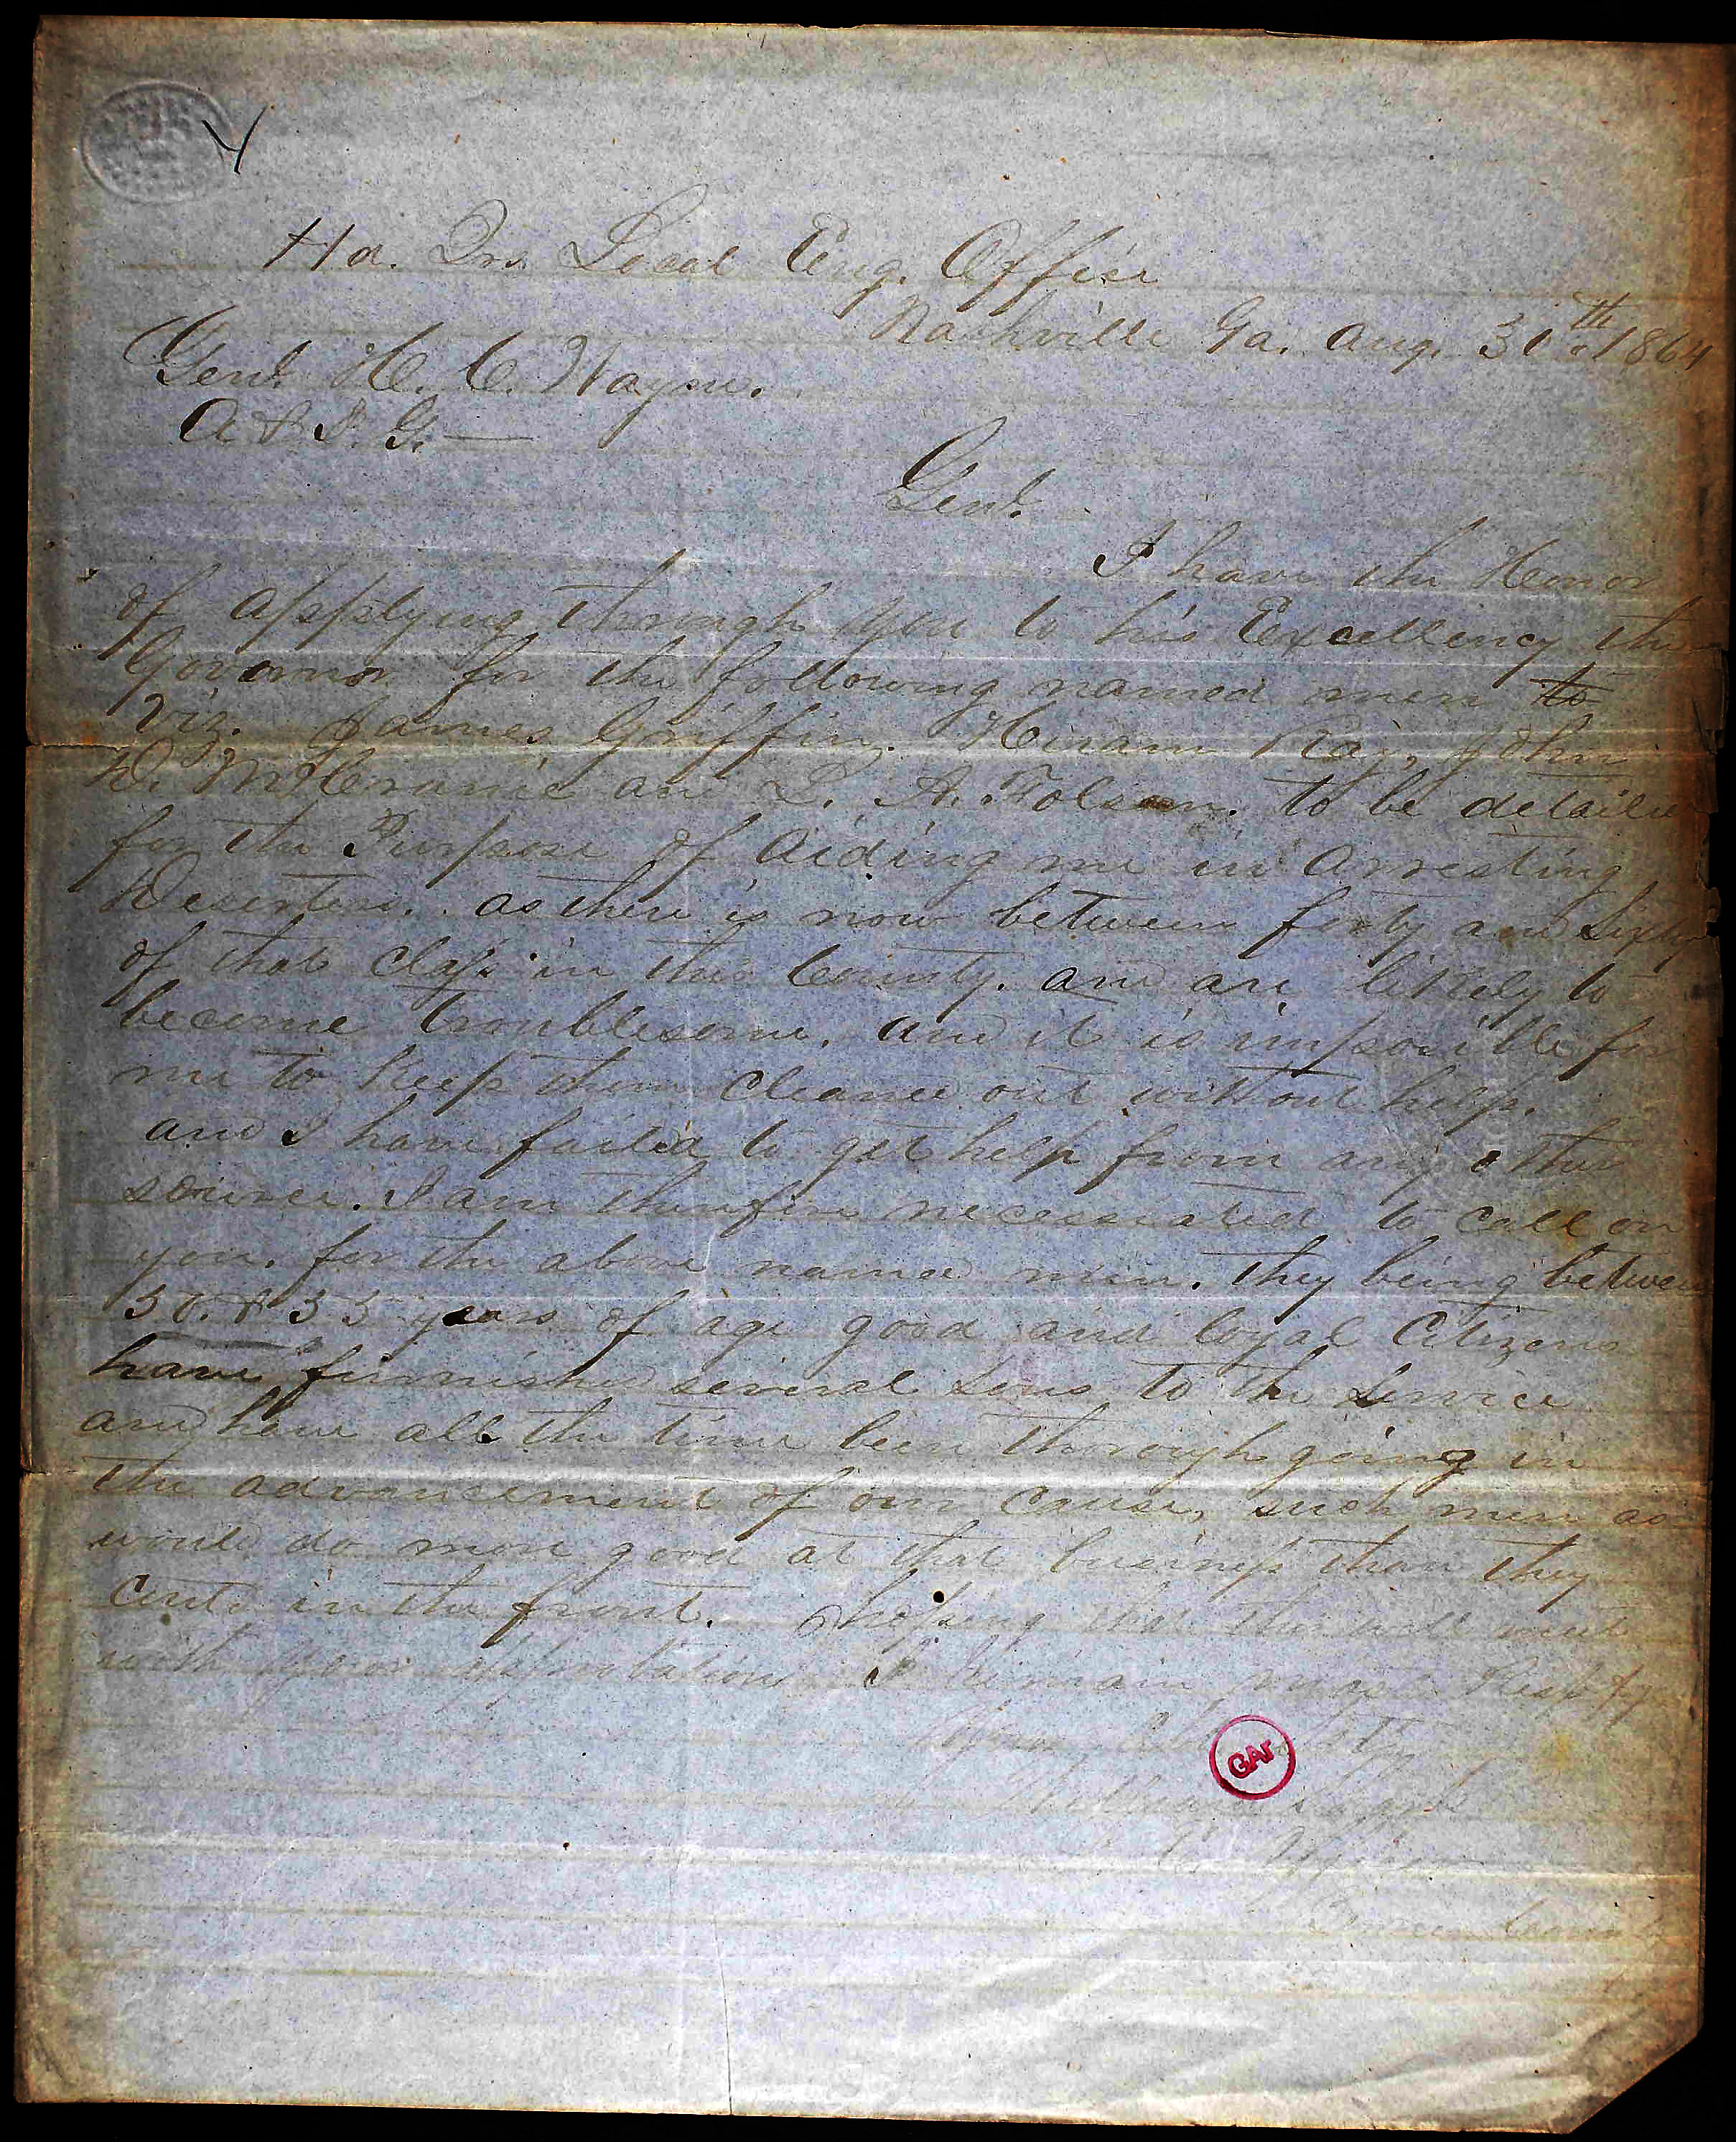 Hd. Qrs Local Eng. Officer
Nashville Ga. Aug. 31th 1864
Genl. H. C. Wayne.
A & I. G. —
Genl.
I have the Honor
of applying through you to his Excellency the
Governor for the following named men to
Viz. James Griffin. Hiram Ray, John
D. McCranie and L. A. Folsom. to be detailed
for the Purpose of aiding me in arresting
Deserters. as there is now between forty and Sixty
of that class in this County. and are likely to
become troublesome. and it is impossible for
me to keep them cleaned out without help.
and I have failed to get help from any other
source. I am therefore necessiated to call on
you. for the above named men. they being between
50. & 55 years of age good and loyal Citizens
have furnished several sons to the service
and have all the time been thorough going in
the advancement of our cause, such men as
would do more good at that business than they
could in the front. hoping that this will meet
with your approbation I Remain most Respfy
Your Obt
William
E. Officer
County
GAr